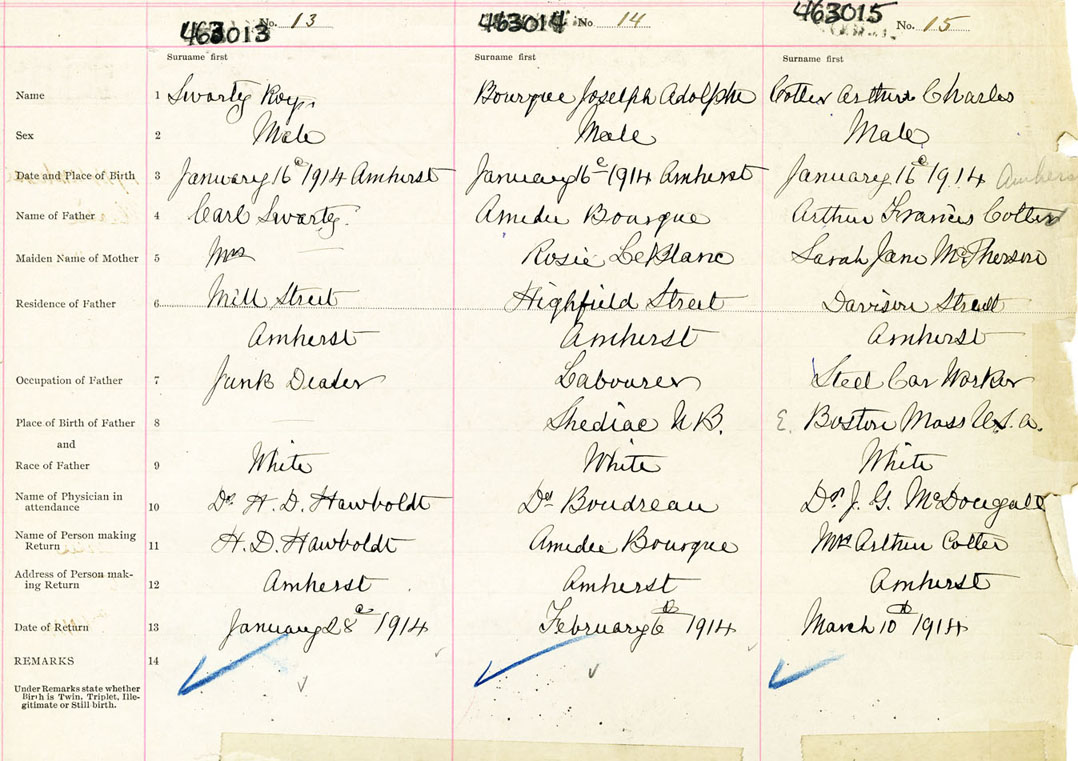 463013 No. 13 463014 No. 14 463015 No. 15
Surname first Surname first Surname first
Name 1 Swarty Roy, Bourque Joselph Adolphe Cotter Arthur Charles
Sex 2 Male Male Male
Date and Place of Birth 3 January 16 1914 Amherst January 16 1914 Amherst January 16 1914 Amherst
Name of Father 4 Carl Swarty. Amedee Bourque Arthur Francis Cotter
Maiden Name of Mother 5 Mrs — Rosie LeBlanc Sarah Jane McPherson
Residence of Father 6 Mill Street Highfield Street Davison Street
Amherst Amherst Amherst
Occupation of Father 7 Junk Dealer Labourer Steel Car Worker
Place of Birth of Father 8 — Shediac N.B. E. Boston Mass U.S.A.
and
Race of Father 9 White White White
Name of Physician in
attendance 10 Dr H. D. Hawboldt Dr Boudreau Dr J. G. McDougall
Name of Person making
Return 11 H. D. Hawboldt Amedee Bourque Mrs Arthur Cotter
Address of Person mak-
ing Return 12 Amherst Amherst Amherst
Date of Return 13 January 28 1914 February 6th 1914 March 10th 1914
REMARKS 14
Under Remarks state whether
Birth is Twin, Triplet, Ille-
gitimate or Still birth.